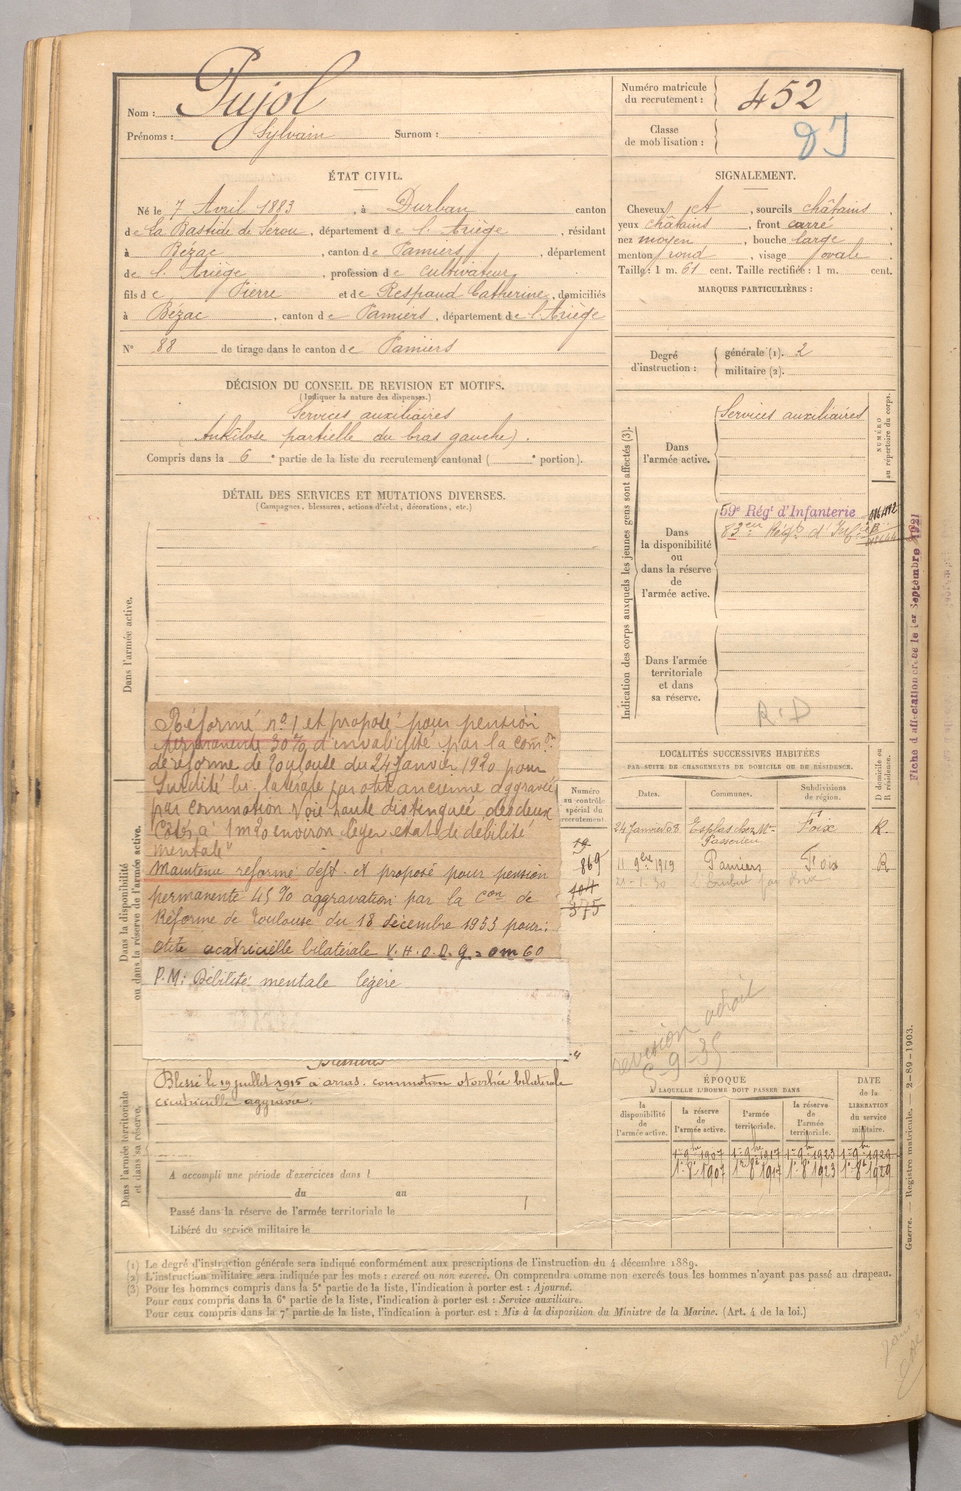 Nom : Pujol
Prénoms : Sylvain Surnom :
Numéro matricule du recrutement : 452
Classe de mobilisation :
ÉTAT CIVIL.
Né le 7 Avril 1883, à Durban canton
de La Bastide de Serou, département de l'Ariège, résidant
à Bézac, canton de Pamiers, département
de l'Ariège, profession de cultivateur,
fils de Pierre et de Respaud Catherine, domiciliés
à Bézac, canton de Pamiers, département de l'Ariège
N° 88 de tirage dans le canton de Pamiers
SIGNALEMENT.
Cheveux et, sourcils châtains,
yeux châtains, front carré,
nez moyen, bouche large,
menton rond, visage ovale.
Taille : 1 m. 61 cent. Taille rectifiée : 1 m. cent.
MARQUES PARTICULIÈRES :
Degré d'instruction : générale (1). 2
militaire (2).
DÉCISION DU CONSEIL DE REVISION ET MOTIFS.
(Indiquer la nature des dispenses.)
Services auxiliaires
(Ankilose partielle du bras gauche).
Compris dans la 6e partie de la liste du recrutement cantonal ( e portion).
DÉTAIL DES SERVICES ET MUTATIONS DIVERSES.
(Campagnes, blessures, actions d'éclat, décorations, etc.)
Dans l'armée active.
Dans la disponibilité ou dans la réserve de l'armée active.
Réformé n° 1 et proposé pour pension
permanente 30% d'invalidité par la comon
de réforme de Toulouse du 24 Janvier 1920 pour
Surdité bi-latérale par otite ancienne aggravée
par commotion Voie haute distinguée des deux
côtés à 1m20 environ léger état de débilité
mentale"
Maintenu réformé déft. et proposé pour pension
permanente 45% aggravation par la Con de
Réforme de Toulouse du 18 décembre 1933 pour :
otite cicatricielle bilatérale V.H.O.D.g = 0m60
P.M : Débilité mentale légère
Blessures
Blessé le 19 juillet 1915 à Arras. commotion otorrhée bilatérale
cicatricielle aggravée.
Dans l'armée territoriale et dans sa réserve.
A accompli une période d'exercices dans l
du au
Passé dans la réserve de l'armée territoriale le
Libéré du service militaire le
Indication des corps auxquels les jeunes gens sont affectés (3).
NUMÉRO au répertoire du corps.
Dans l'armée active.
Services auxiliaires
Dans la disponibilité ou dans la réserve de l'armée active.
59e Régt d'Infanterie
83eme Régt d'Inf.
Dans l'armée territoriale et dans sa réserve.
R.D
Fiche d'affectation créée le 1er Septembre 1921
LOCALITÉS SUCCESSIVES HABITÉES
PAR SUITE DE CHANGEMENTS DE DOMICILE OU DE RÉSIDENCE.
Numéro au contrôle spécial du recrutement.
Dates. Communes. Subdivisions de région. D domicile ou R résidence.
24 Janvier 08 Esplas chez Mr Foix R.
11 9bre 1919 Pamiers Foix R
869
375
revision
ÉPOQUE
À LAQUELLE L'HOMME DOIT PASSER DANS
DATE de la LIBÉRATION du service militaire.
la disponibilité de l'armée active. la réserve de l'armée active. l'armée territoriale. la réserve de l'armée territoriale.
1er 9bre 1907 1er 9bre 1917 1er 9bre 1923 1er 9bre 1929
1er 8bre 1907 1er 8bre 1917 1er 8bre 1923 1er 8bre 1929
Guerre. — Registre matricule. — 2-89-1903.
(1) Le degré d'instruction générale sera indiqué conformément aux prescriptions de l'instruction du 4 décembre 1889.
(2) L'instruction militaire sera indiquée par les mots : exercé ou non exercé. On comprendra comme non exercés tous les hommes n'ayant pas passé au drapeau.
(3) Pour les hommes compris dans la 5e partie de la liste, l'indication à porter est : Ajourné.
Pour ceux compris dans la 6e partie de la liste, l'indication à porter est : Service auxiliaire.
Pour ceux compris dans la 7e partie de la liste, l'indication à porter est : Mis à la disposition du Ministre de la Marine. (Art. 4 de la loi.)